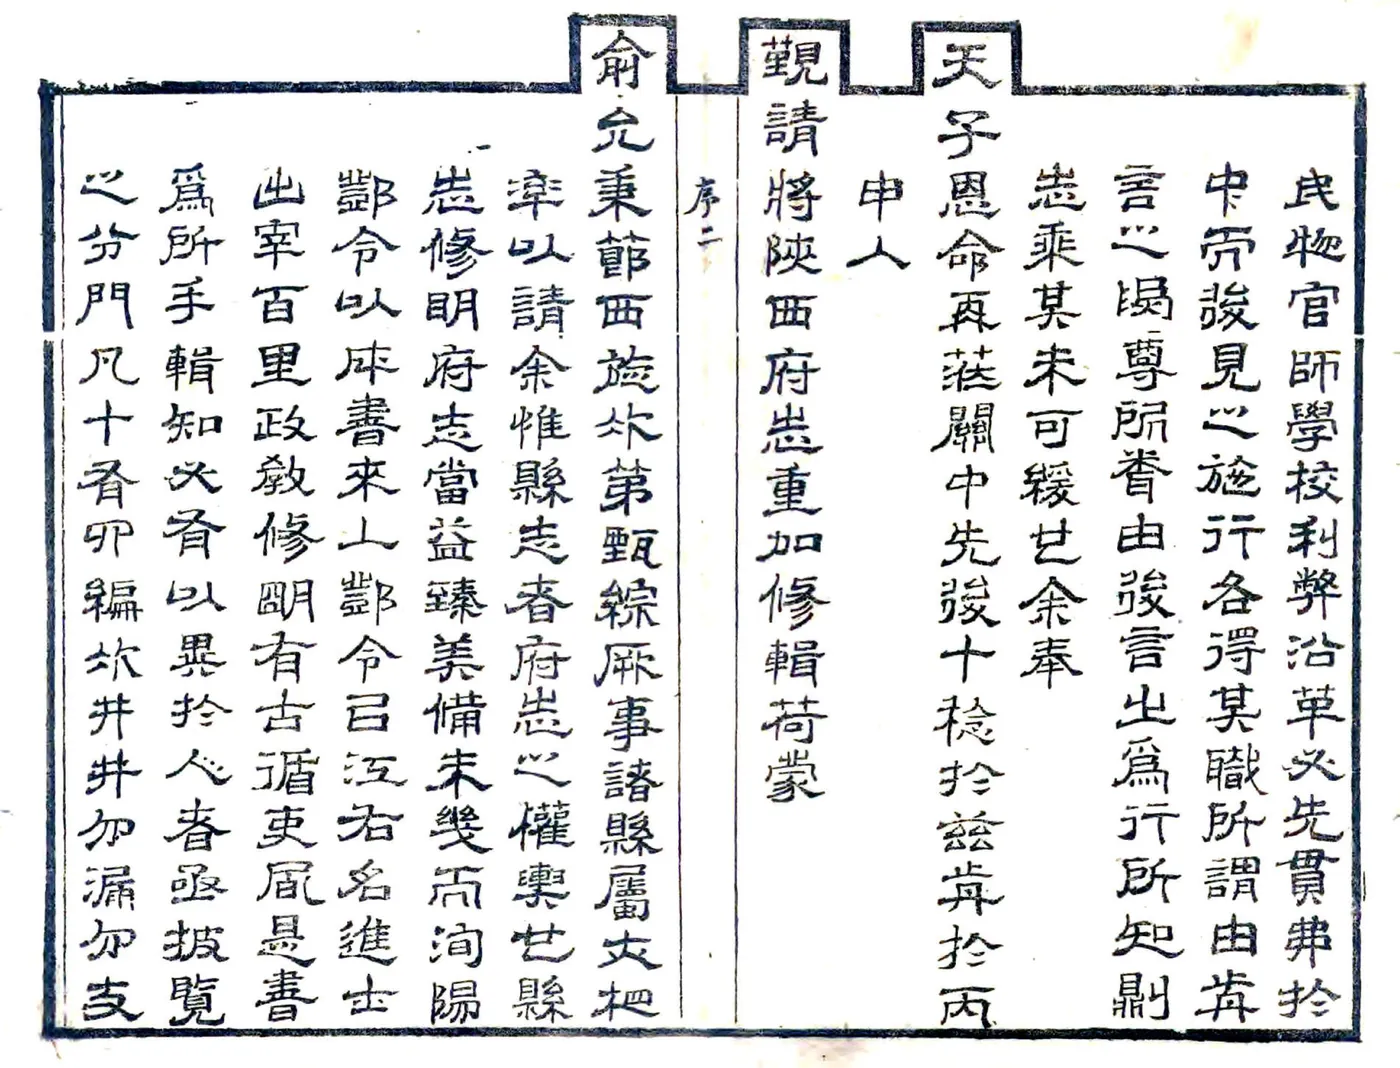 民物官師學校利弊沿革必先貫弗於
中而後見之施行各得其職所謂由前
言之則尊所聞由後言之為行所知則
志乘其未可緩也余奉
天子恩命再莅關中先後十稔於茲前於丙
申人
覲請將陝西府志重加修輯荷蒙
俞允秉節西旋次第甄綜厥事諸縣屬亦把
率以請余惟縣志者府志之權輿也縣
志修明府志當益臻美備未幾而洵陽
鄧令以所書來上鄧令固江右名進士
出宰百里政教修明有古循吏風是書
為所手輯知必有以異於人者亟披覽
之分門凡十有四編次井井勿漏勿支
序二